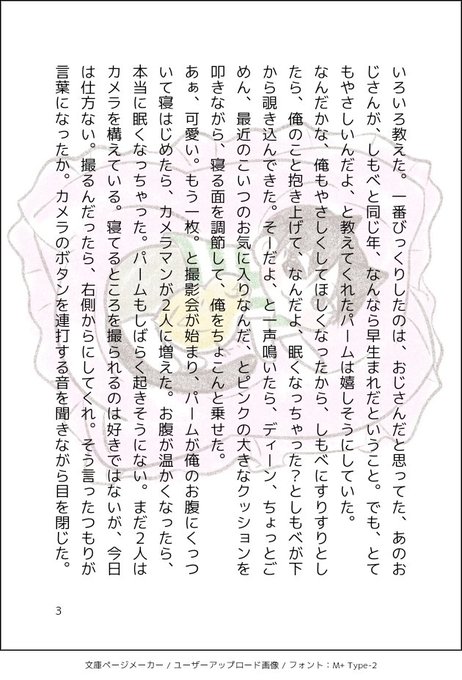 いろいろ教えた。一番びっくりしたのは、おじさんだと思ってた、あのお
じさんが、しもべと同じ年、なんなら早生まれだということ。でも、とて
もやさしいんだよ、と教えてくれたパームは嬉しそうにしていた。
なんだかな、俺もやさしくしてほしくなったから、しもべにすりすりとし
たら、俺のこと抱き上げて、なんだよ、眠くなっちゃった？としもべが下
から覗き込んできた。そーだよ、と一声鳴いたら、ディーン、ちょっとご
めん、最近のこいつのお気に入りなんだ、とピンクの大きなクッションを
叩きながら、寝る面を調節して、俺をちょこんと乗せた。
あぁ、可愛い。もう一枚。と撮影会が始まり、パームが俺のお腹にくっつ
いて寝はじめたら、カメラマンが2人に増えた。お腹が温かくなったら、
本当に眠くなっちゃった。パームもしばらく起きそうにない。まだ2人は
カメラを構えている。寝てるところを撮られるのは好きではないが、今日
は仕方ない。撮るんだったら、右側からにしてくれ。そう言ったつもりが
言葉になったか。カメラのボタンを連打する音を聞きながら目を閉じた。
3
文庫ページメーカー / ユーザーアップロード画像 / フォント：M+ Type-2